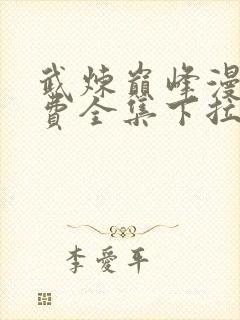 武炼巅峰漫
费全集下拉
李爱平